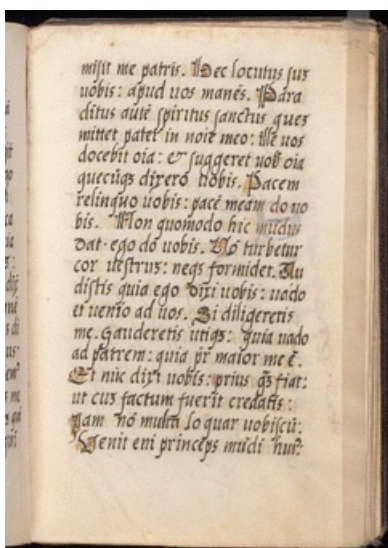 misit me patris. Hec locutus suʒ
uobis: apud uos manēs. Para
clitus autē spiritus sanctus queʒ
mittet pater in noīe meo: ille uos
docebit oīa: & suggeret uob oīa
quecūqʒ dixero uobis. Pacem
relinquo uobis: pacē meam do uo
bis. Non quomodo hic mūdus
dat. ego dō uobis. Nō turbetur
cor vestruʒ: neqʒ formidet. Au
distis quia ego dixi uobis: uado
et uenio ad uos. Si diligeretis
me. gauderetis utiqʒ: quia uado
ad patrem: quia pr̄ maior me ē.
Et nūc dixi uobis: prius qʒ fiat:
ut cuʒ factum fuerit credatis:
Jam nō multa loquar uobiscū:
Venit eni princeps mūdi hui